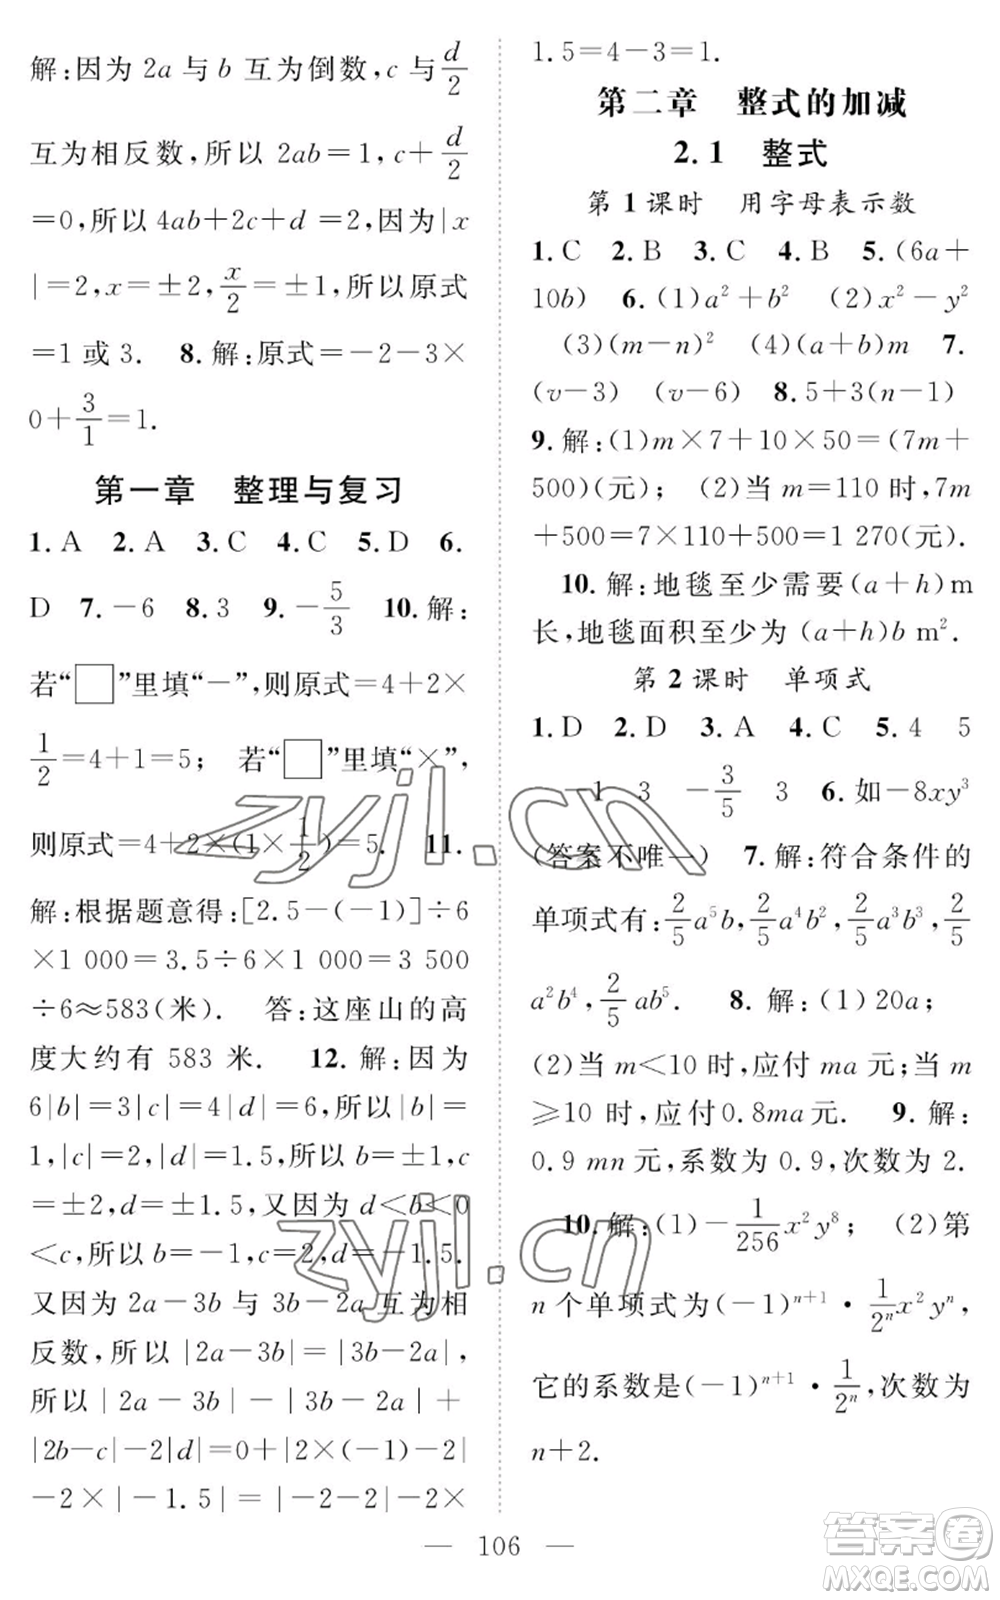 解:因为 2a 与 b 互为倒数,c 与 d/2
互为相反数,所以 2ab=1,c+ d/2
=0,所以 4ab+2c+d=2,因为|x
|=2,x=±2, x/2 =±1,所以原式
=1 或 3. 8.解:原式=-2-3×
0+ 3/1 =1.
第一章 整理与复习
1.A 2.A 3.C 4.C 5.D 6.
D 7.-6 8.3 9.- 5/3 10.解:
若“□”里填“-”,则原式=4+2×
1/2 =4+1=5; 若“□”里填“×”,
则原式=4+2×(1× 1/2 )=5. 11.
解:根据题意得:[2.5-(-1)]÷6
×1 000=3.5÷6×1 000=3 500
÷6≈583(米). 答:这座山的高
度大约有 583 米. 12.解:因为
6|b|=3|c|=4|d|=6,所以|b|=
1,|c|=2,|d|=1.5,所以 b=±1,c
=±2,d=±1.5,又因为 d<b<0
<c,所以 b=-1,c=2,d=-1.5.
又因为 2a-3b 与 3b-2a 互为相
反数,所以 |2a-3b|=|3b-2a|,
所以 |2a-3b|-|3b-2a|+
|2b-c|-2|d|=0+|2×(-1)-2|
-2×|-1.5|=|-2-2|-2×
1.5=4-3=1.
第二章 整式的加减
2.1 整式
第 1 课时 用字母表示数
1.C 2.B 3.C 4.B 5.(6a+
10b) 6.(1)a²+b² (2)x²-y²
(3)(m-n)² (4)(a+b)m 7.
(v-3) (v-6) 8.5+3(n-1)
9.解:(1)m×7+10×50=(7m+
500)(元); (2)当 m=110 时,7m
+500=7×110+500=1 270(元).
10.解:地毯至少需要(a+h)m
长,地毯面积至少为 (a+h)b m².
第 2 课时 单项式
1.D 2.D 3.A 4.C 5.4 5
1 3 - 3/5 3 6.如-8xy³
(答案不唯一) 7.解:符合条件的
单项式有: 2/5 a⁵b, 2/5 a⁴b², 2/5 a³b³, 2/5
a²b⁴, 2/5 ab⁵. 8.解:(1)20a;
(2)当 m<10 时,应付 ma 元;当 m
≥10 时,应付 0.8ma 元. 9.解:
0.9 mn 元,系数为 0.9,次数为 2.
10.解:(1)- 1/256 x²y⁸; (2)第
n 个单项式为(-1)ⁿ⁺¹· 1/2ⁿ x²yⁿ,
它的系数是(-1)ⁿ⁺¹· 1/2ⁿ ,次数为
n+2.
— 106 —
zyjl.cn
zyjl.cn
答案圈
MXQE.COM